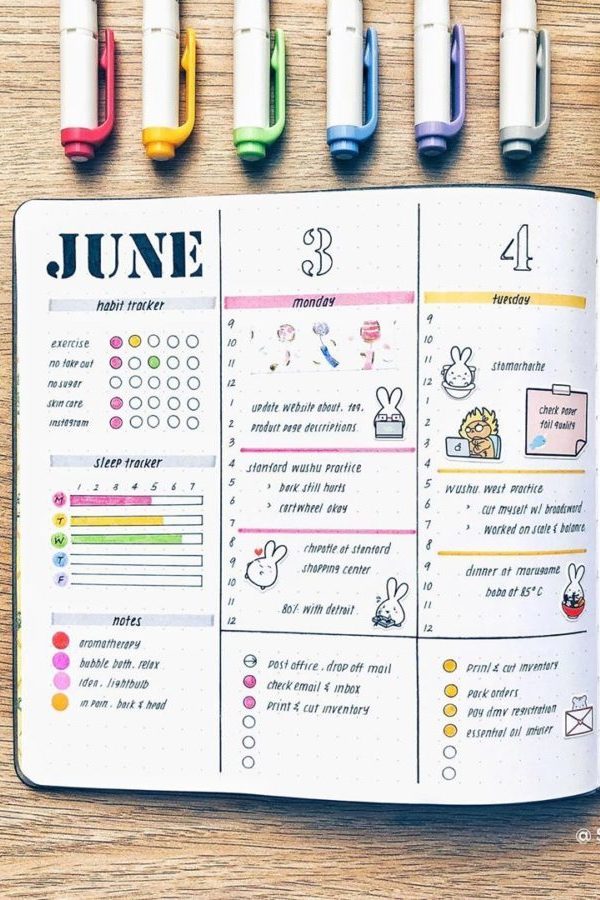 JUNE
habit tracker
exercise
no take out
no sugar
skin care
instagram
sleep tracker
1 2 3 4 5 6 7
M
T
W
T
F
notes
aromatherapy
bubble bath. relax
idea. lightbulb
in pain. back & head
3
monday
9
10
11
12
1
2
3
4
5
6
7
8
9
10
11
12
update website about. faq.
product page descriptions
stanford wushu practice
> back still hurts
> cartwheel okay
chipotle at stanford
shopping center
80% with detroit
post office. drop off mail
check email & inbox
print & cut inventory
4
tuesday
9
10
11
12
1
2
3
4
5
6
7
8
9
10
11
12
stomachache
check paper
foil quality
wushu west practice
> cut myself w/ broadsword
> worked on scale & balance
dinner at marugame
boba at 85°C
print & cut inventory
pack orders
pay dmv registration
essential oil infuser
@ S